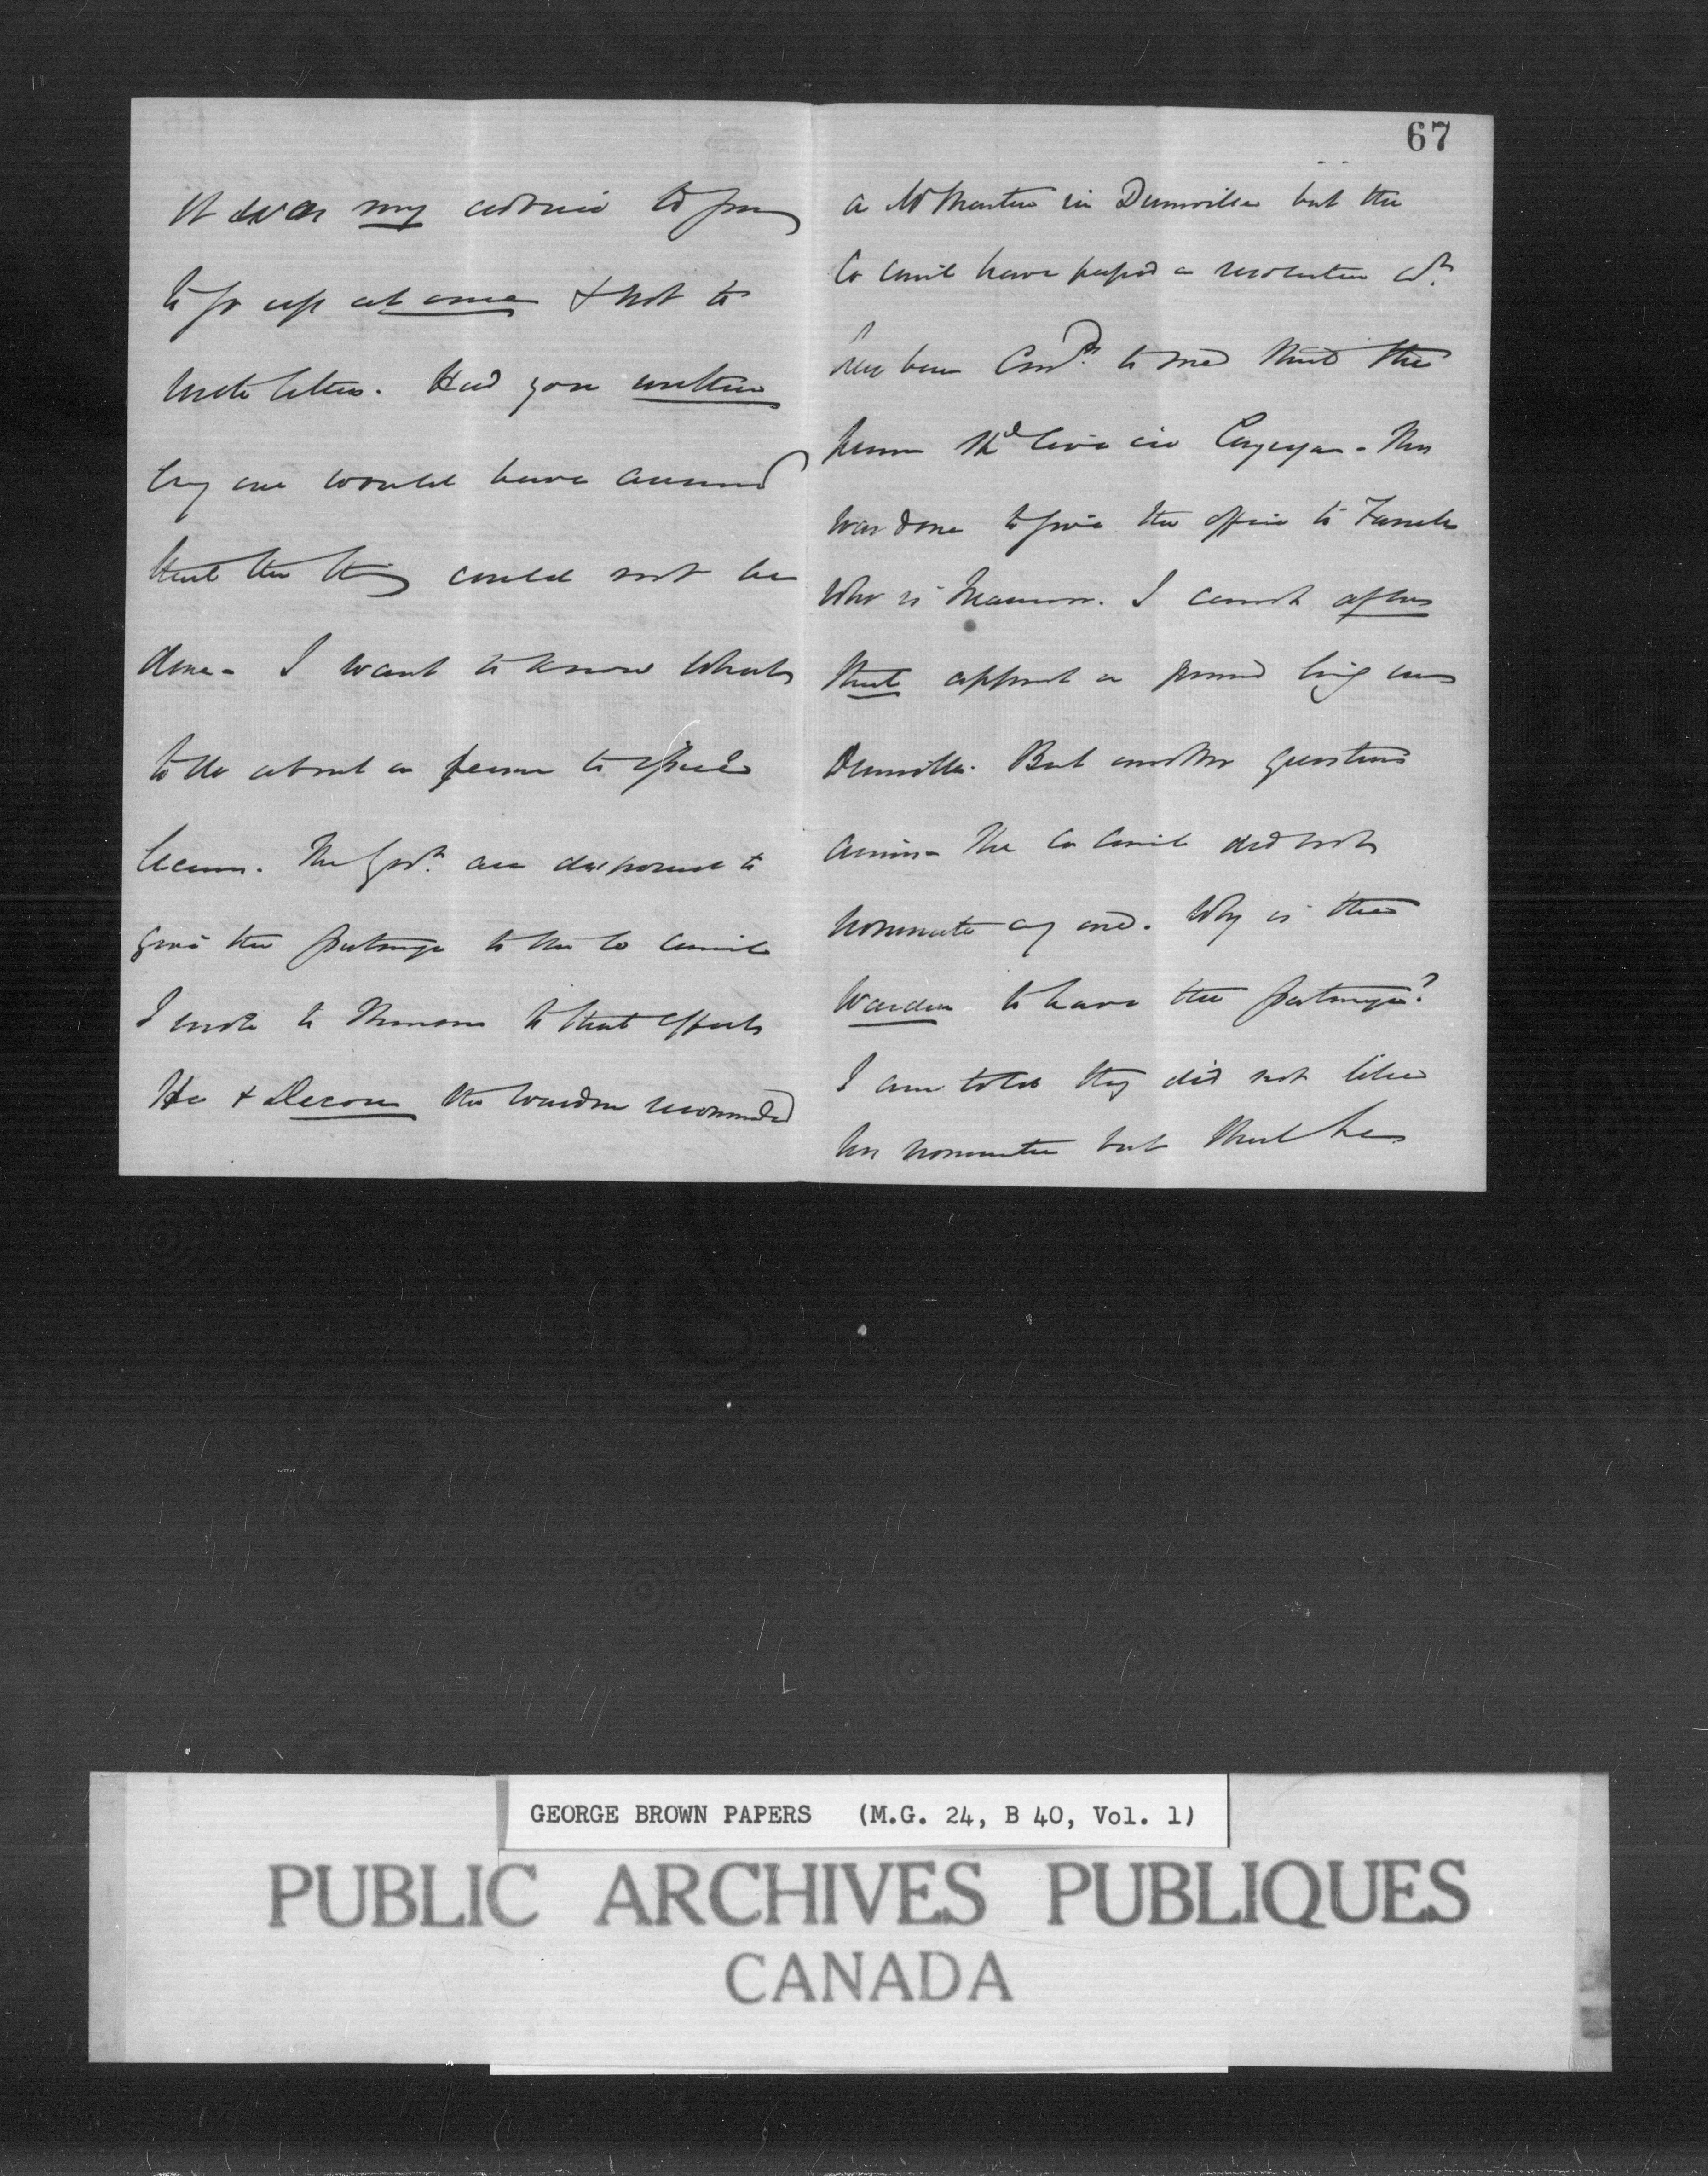 It was my advice to you
to go up at once & not to
write letters. Had you written
Any one would have answered
that the thing could not be
done - I want to know what
to do about a person to issue
licenses. The Govt. are disposed to
give the patronage to the Co Council
I wrote to Thomson to that effect
He & Decow the Warden recommended
67
a McMartin in Dunnville but the
Co Council have passed a resolution wh.
has been to me that the
person shd live in Cayuga - This
was done to give the office to
who is . I cannot after
that appoint a person living in
Dunnville. But another question
arises - The Co Council did not
nominate any one. Why is the
Warden to have the patronage?
I am told they did not like
his nominee but that he
GEORGE BROWN PAPERS (M.G. 24, B 40, Vol. 1)
PUBLIC ARCHIVES PUBLIQUES
CANADA